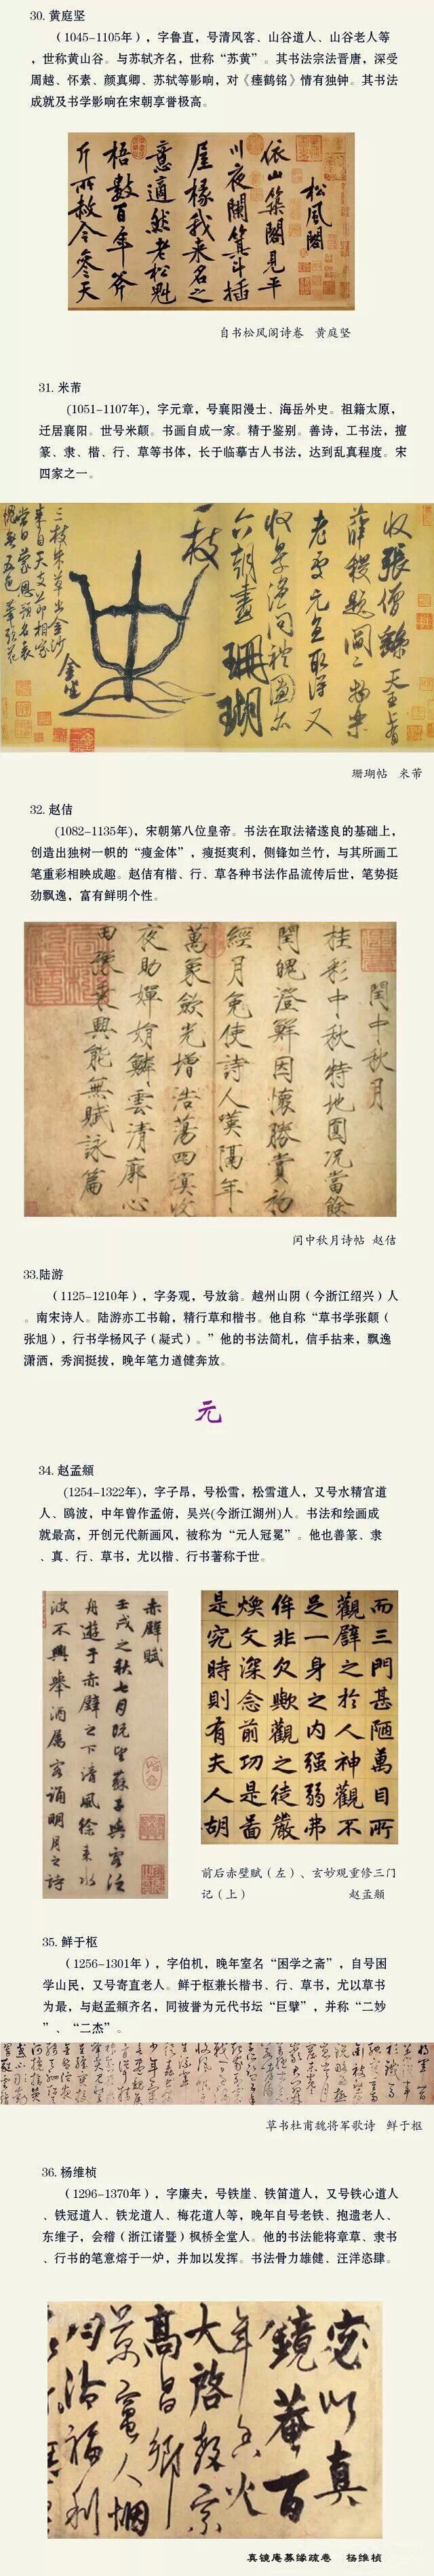 30. 黄庭坚
（1045-1105年），字鲁直，号清风客、山谷道人、山谷老人等
，世称黄山谷。与苏轼齐名，世称“苏黄”。其书法宗法晋唐，深受
周越、怀素、颜真卿、苏轼等影响，对《瘗鹤铭》情有独钟。其书法
成就及书学影响在宋朝享誉极高。
松風閣
依山築閣見平
川夜闌箕斗插
屋椽我来名之
意適然老松魁
梧數百年斧
斤所赦令參天
自书松风阁诗卷 黄庭坚
31. 米芾
(1051-1107年)，字元章，号襄阳漫士、海岳外史。祖籍太原，
迁居襄阳。世号米颠。书画自成一家。精于鉴别。善诗，工书法，擅
篆、隶、楷、行、草等书体，长于临摹古人书法，达到乱真程度。宋
四家之一。
收張僧繇天王上有
薛稷題閻二物樂
老處元直取得又
收景溫問禮圖亦
六朝畫珊瑚
一枝
金坐
三枝朱草出金沙
来自天支節相家
當日蒙恩預名表
愧無五色筆頭花
珊瑚帖 米芾
32. 赵佶
(1082-1135年)，宋朝第八位皇帝。书法在取法褚遂良的基础上，
创造出独树一帜的“瘦金体”，瘦挺爽利，侧锋如兰竹，与其所画工
笔重彩相映成趣。赵佶有楷、行、草各种书法作品流传后世，笔势挺
劲飘逸，富有鲜明个性。
閏中秋月
桂彩中秋特地圓况當餘
閏魄澄鮮因懷勝賞初
經月免使詩人嘆隔年
萬象斂光增浩蕩四溟收
夜助嬋娟鱗雲清廓心
田豫乘興能無賦詠篇
闰中秋月诗帖 赵佶
33.陆游
（1125-1210年），字务观，号放翁。越州山阴（今浙江绍兴）人
。南宋诗人。陆游亦工书翰，精行草和楷书。他自称“草书学张颠（
张旭），行书学杨风子（凝式）。”他的书法简札，信手拈来，飘逸
潇洒，秀润挺拔，晚年笔力遒健奔放。
元
34. 赵孟頫
(1254-1322年)，字子昂，号松雪，松雪道人，又号水精宫道
人、鸥波，中年曾作孟俯，吴兴(今浙江湖州)人。书法和绘画成
就最高，开创元代新画风，被称为“元人冠冕”。他也善篆、隶
、真、行、草书，尤以楷、行书著称于世。
赤壁賦
壬戌之秋七月既望蘇子與客泛
舟遊于赤壁之下清風徐来水
波不興舉酒属客誦明月之诗
而三門甚陋萬目所
觀壁之於人神觀不
足一身之内强弱弗
侔非欠歟觀之徒嚴
煥文深念前功是啚
是究時則有夫人胡
前后赤壁赋（左）、玄妙观重修三门
记（上） 赵孟頫
35. 鲜于枢
（1256-1301年），字伯机，晚年室名“困学之斋”，自号困
学山民，又号寄直老人。鲜于枢兼长楷书、行、草书，尤以草书
为最，与赵孟頫齐名，同被誉为元代书坛“巨擘”，并称“二妙
”、“二杰”。
草书杜甫魏将军歌诗 鲜于枢
36. 杨维桢
（1296-1370年），字廉夫，号铁崖、铁笛道人，又号铁心道人
、铁冠道人、铁龙道人、梅花道人等，晚年自号老铁、抱遗老人、
东维子，会稽（浙江诸暨）枫桥全堂人。他的书法能将章草、隶书
、行书的笔意熔于一炉，并加以发挥。书法骨力雄健、汪洋恣肆。
宓以真
鏡菴百
年香火
大啓教宗
高昌鄉
真镜庵募缘疏卷 杨维桢